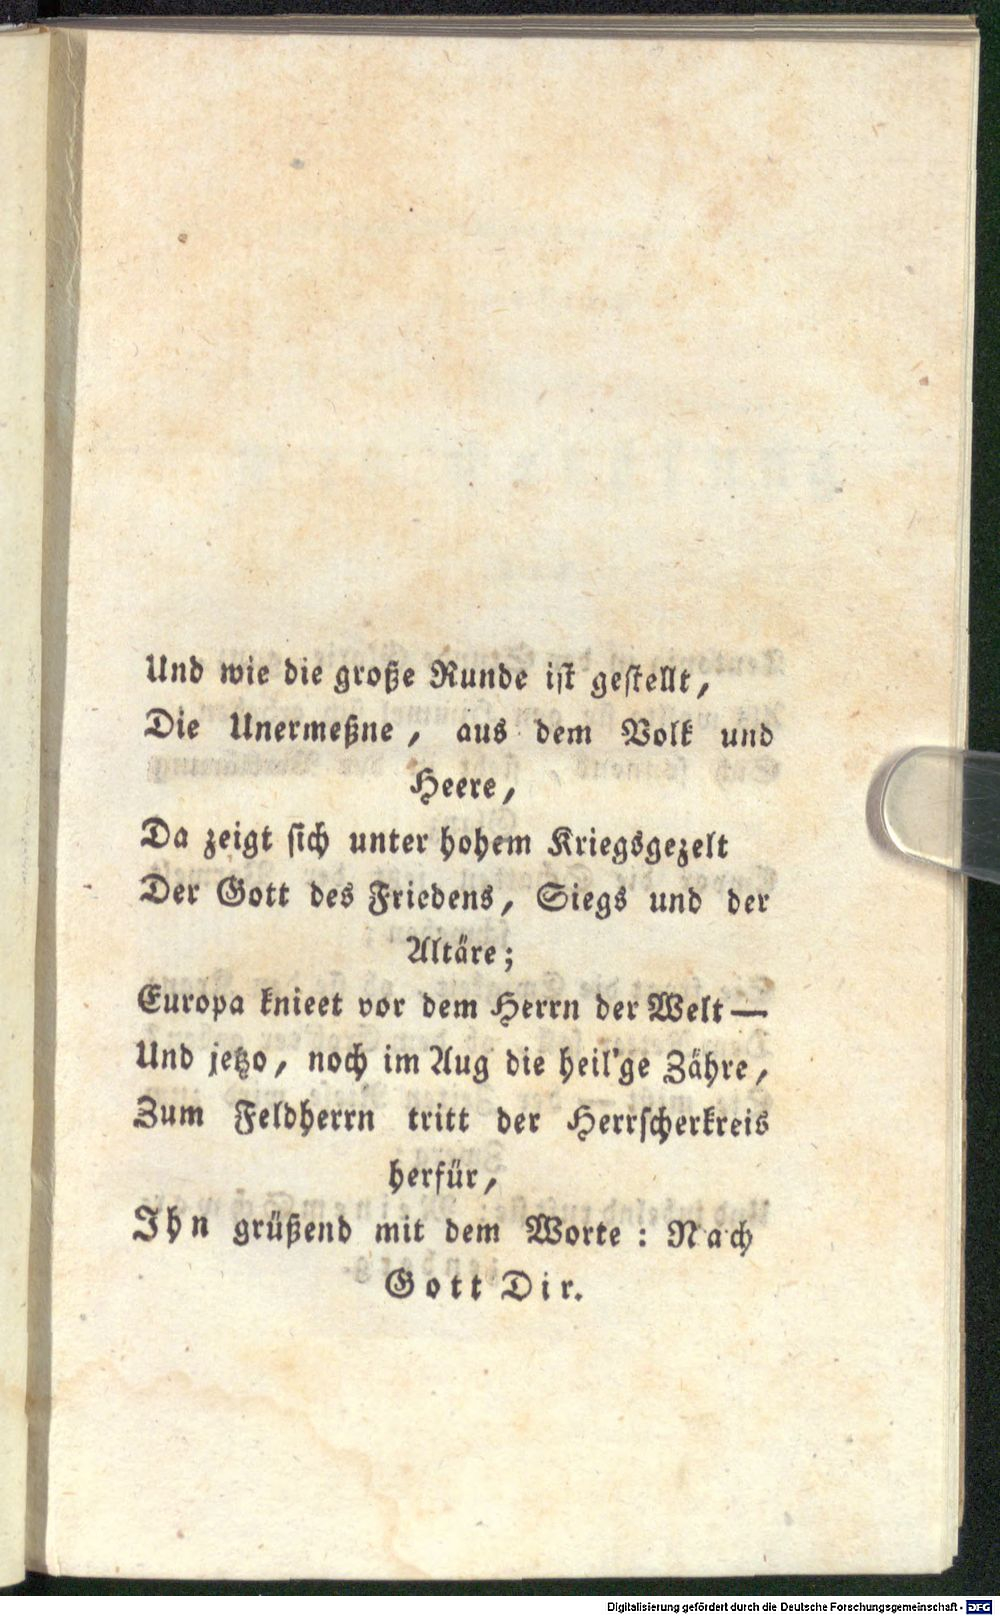 Und wie die große Runde ist gestellt,
Die Unermeßne, aus dem Volk und
Heere,
Da zeigt sich unter hohem Kriegsgezelt
Der Gott des Friedens, Siegs und der
Altäre;
Europa knieet vor dem Herrn der Welt—
Und jetzo, noch im Aug die heil'ge Zähre,
Zum Feldherrn tritt der Herrscherkreis
herfür,
Ihn grüßend mit dem Worte: Nach
Gott Dir.
Digitalisierung gefördert durch die Deutsche Forschungsgemeinschaft - DFG